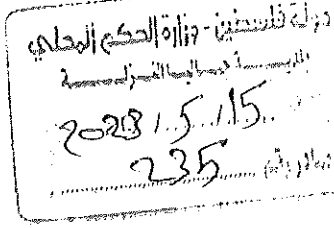 دولة فلسطين - وزارة الحكم المحلي
2023/5/15
صادر رقم 235